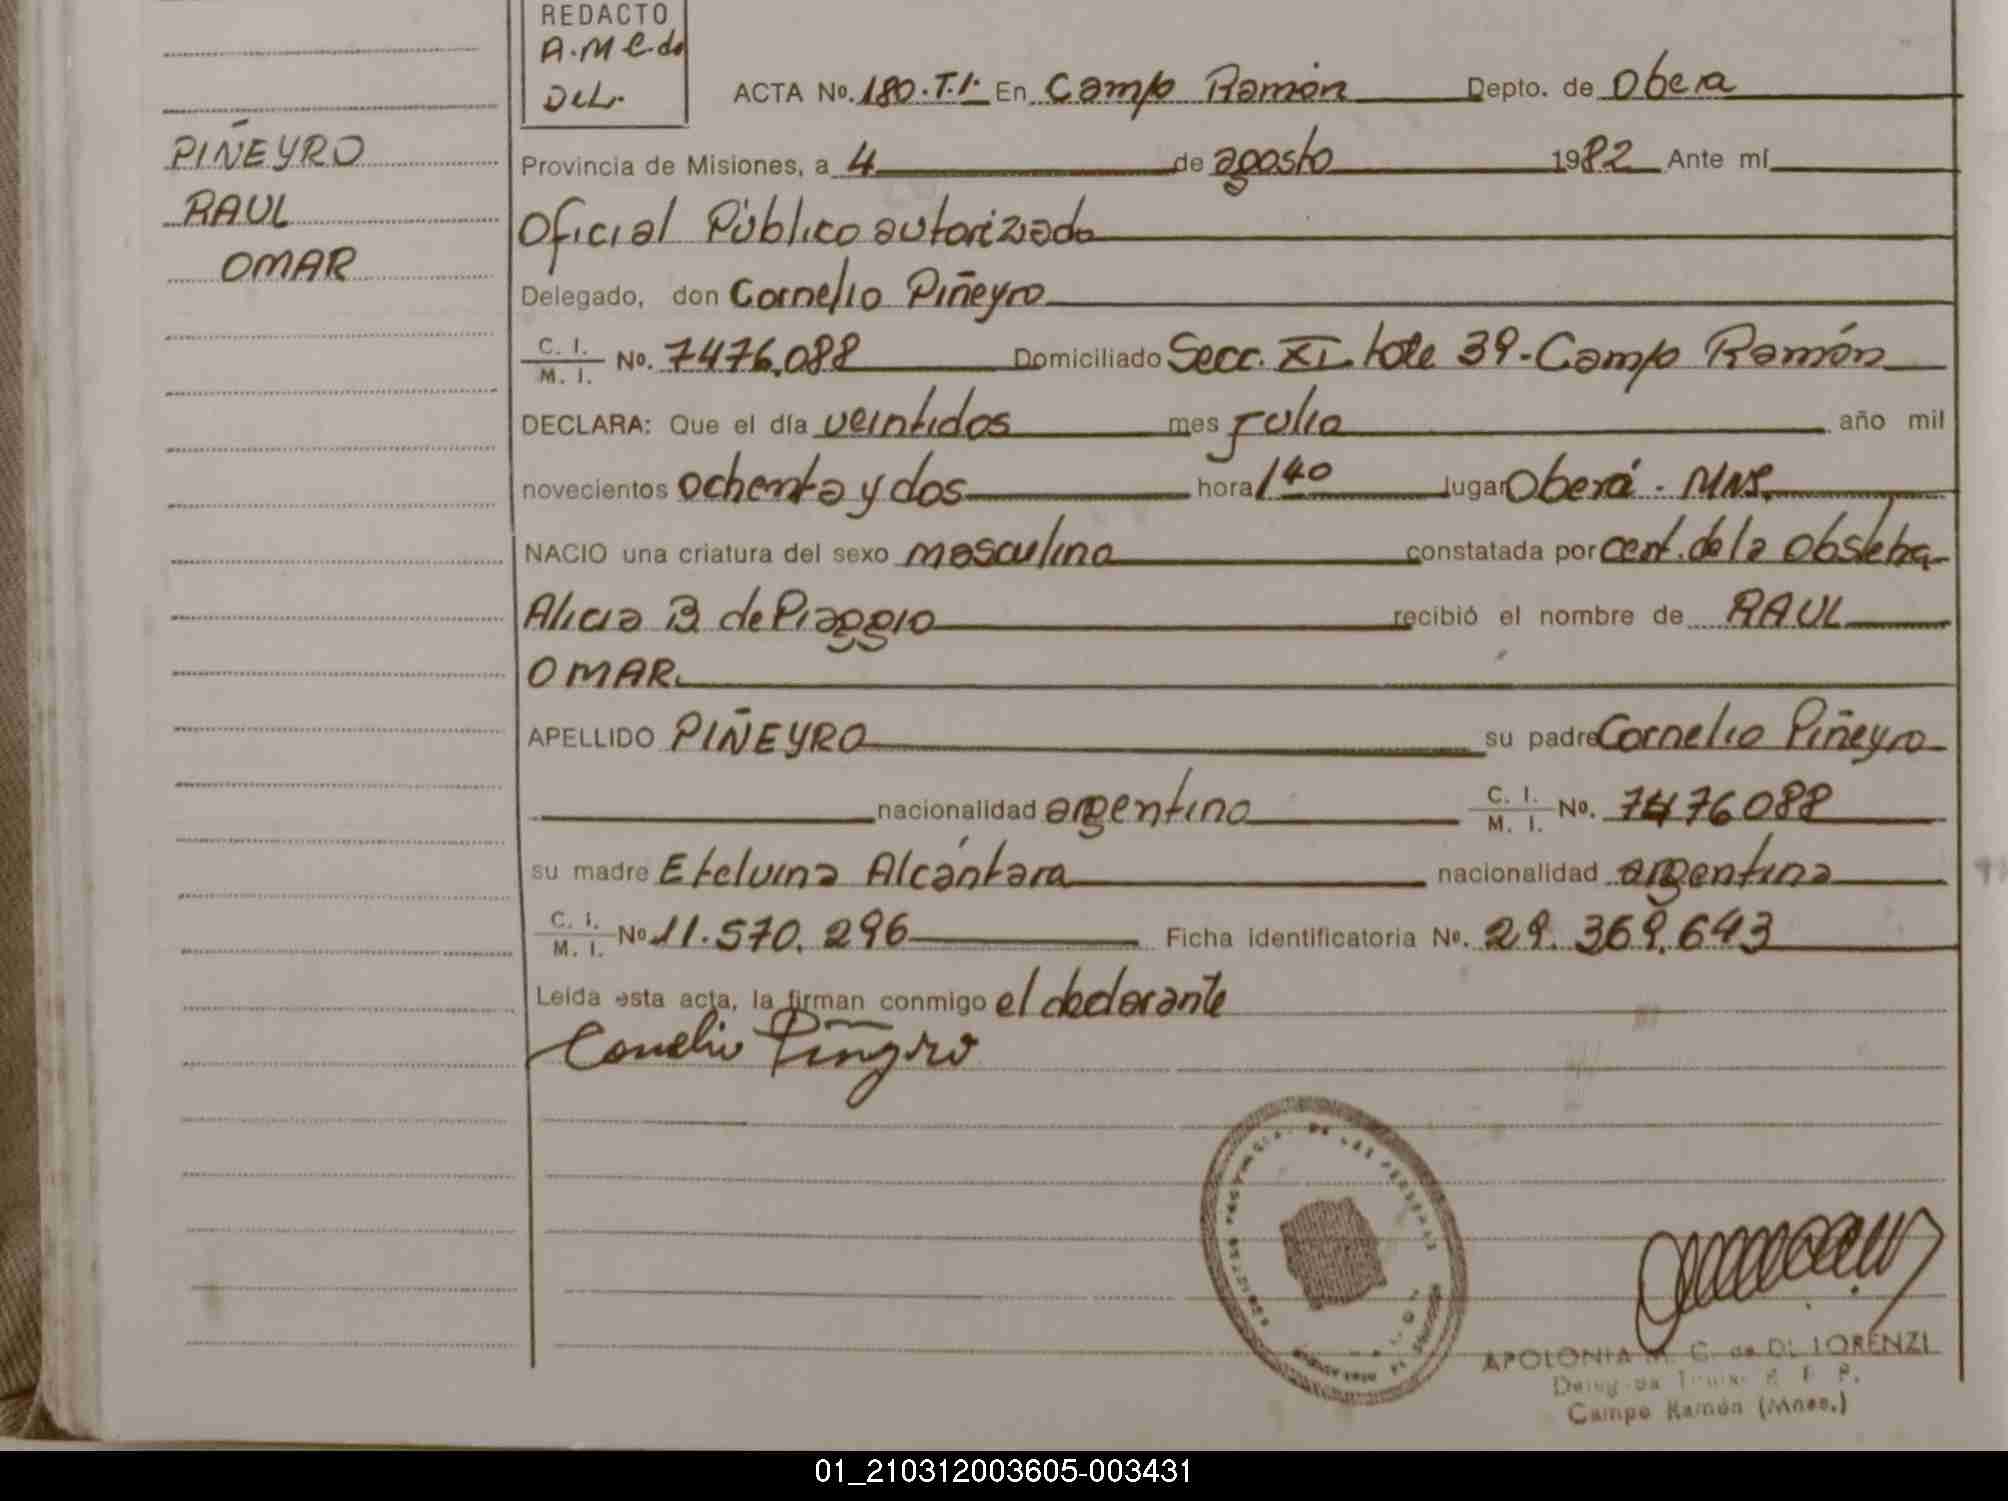 REDACTO
A.M C.de
DiL.
ACTA No. 180.T.1. En Campo Ramón Depto. de Obera
PIÑEYRO
RAUL
OMAR
Provincia de Misiones, a 4 de agosto 1982 Ante mí
Oficial Público autorizado
Delegado, don Cornelio Piñeyro
C. I. M. I. No. 7476.088 Domiciliado Secc. XI lote 39 - Campo Ramón
DECLARA: Que el día veintidos mes julio año mil
novecientos ochenta y dos hora 1 40 lugar Oberá - MNS.
NACIO una criatura del sexo masculino constatada por cert. de la obstetra
Alicia B de Piaggio recibió el nombre de RAUL
OMAR.
APELLIDO PIÑEYRO su padre Cornelio Piñeyro
nacionalidad argentino C. I. M. I. No. 7476088
su madre Etelvina Alcántara nacionalidad argentina
C. I. M. I. No 11.570.296 Ficha identificatoria No. 29.369.643
Leída esta acta, la firman conmigo el declarante
Cornelio Piñeyro
APOLONIA M. C. de DI LORENZI
Campo Ramón (Mnes.)
01_210312003605-003431